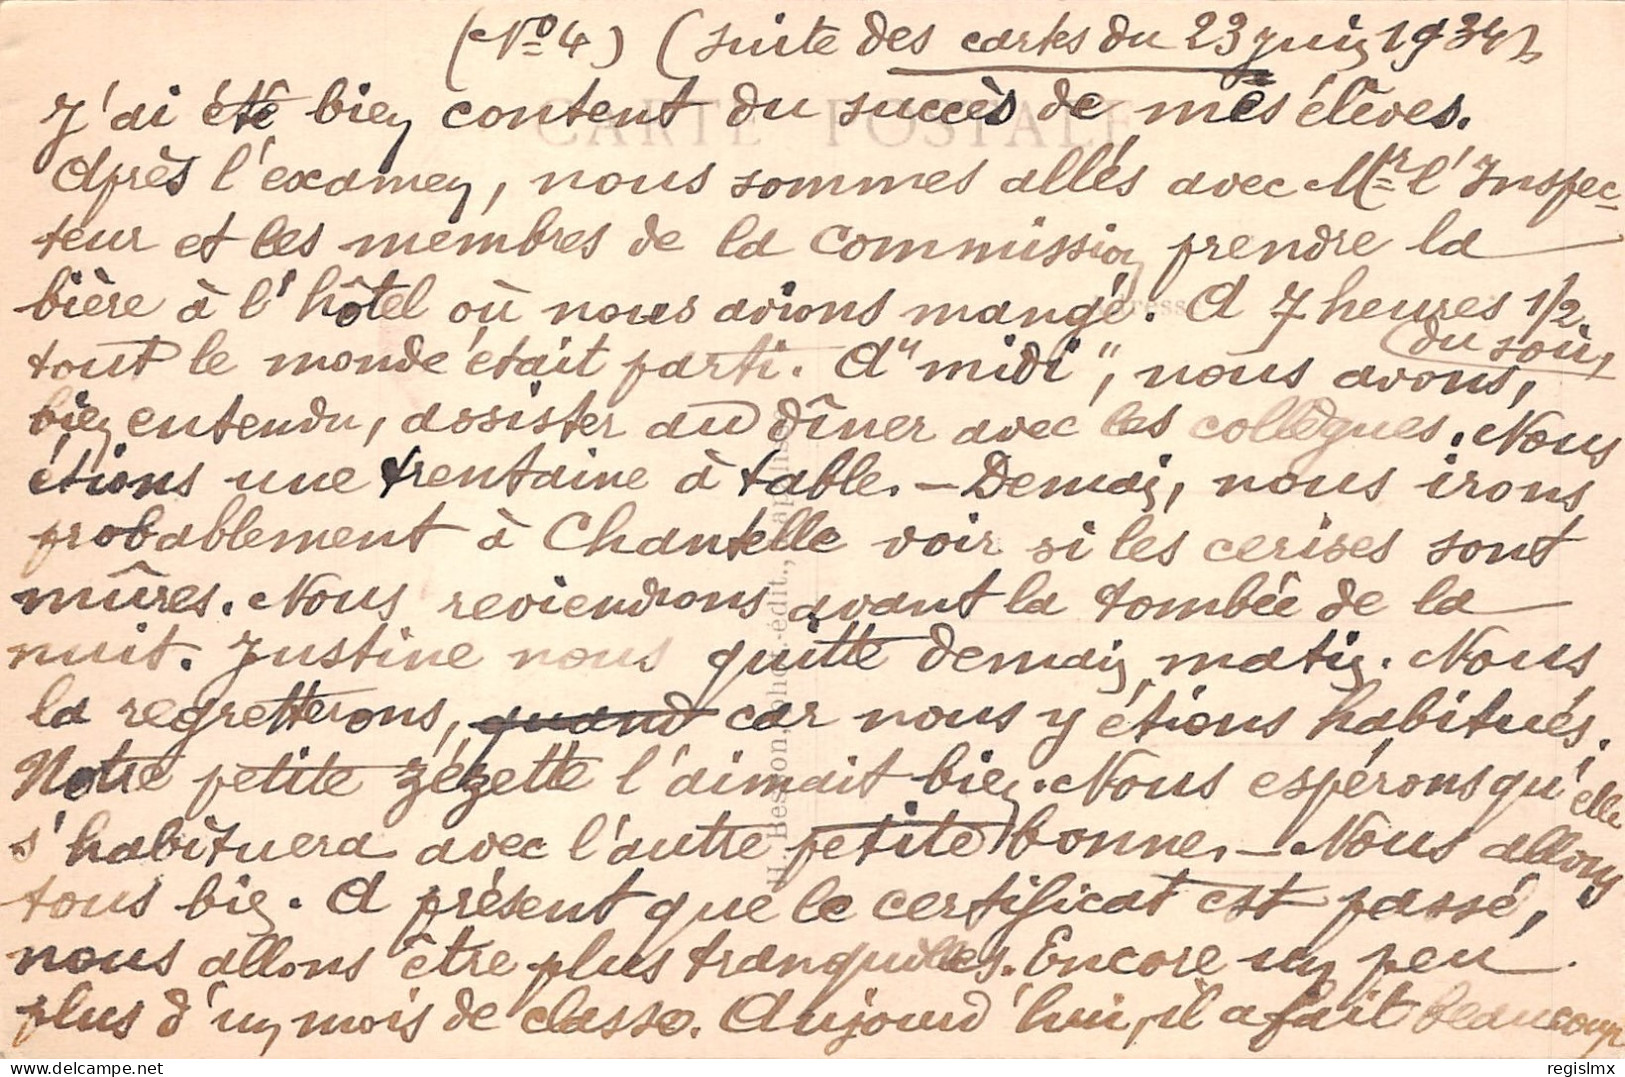 (No 4) (suite des cartes du 23 juin 1934)
CARTE POSTALE
J'ai été bien content du succès de mes élèves.
Après l'examen, nous sommes allés avec Mr l'Inspec-
teur et les membres de la commission prendre la
bière à l'hôtel où nous avions mangé. A 7 heures 1/2
du soir,
tout le monde était parti. A "midi", nous avons,
bien entendu, assister au dîner avec les collègues. Nous
étions une trentaine à table. — Demain, nous irons
probablement à Chantelle voir si les cerises sont
mûres. Nous reviendrons avant la tombée de la
nuit. Justine nous quitte demain matin. Nous
la regretterons, quand car nous y étions habitués.
Notre petite zézette l'aimait bien. Nous espérons qu'elle
s'habituera avec l'autre petite bonne. — Nous allons
tous bien. A présent que le certificat est passé,
nous allons être plus tranquilles. Encore un peu
plus d'un mois de classe. Aujourd'hui, il a fait beaucoup
regislmx